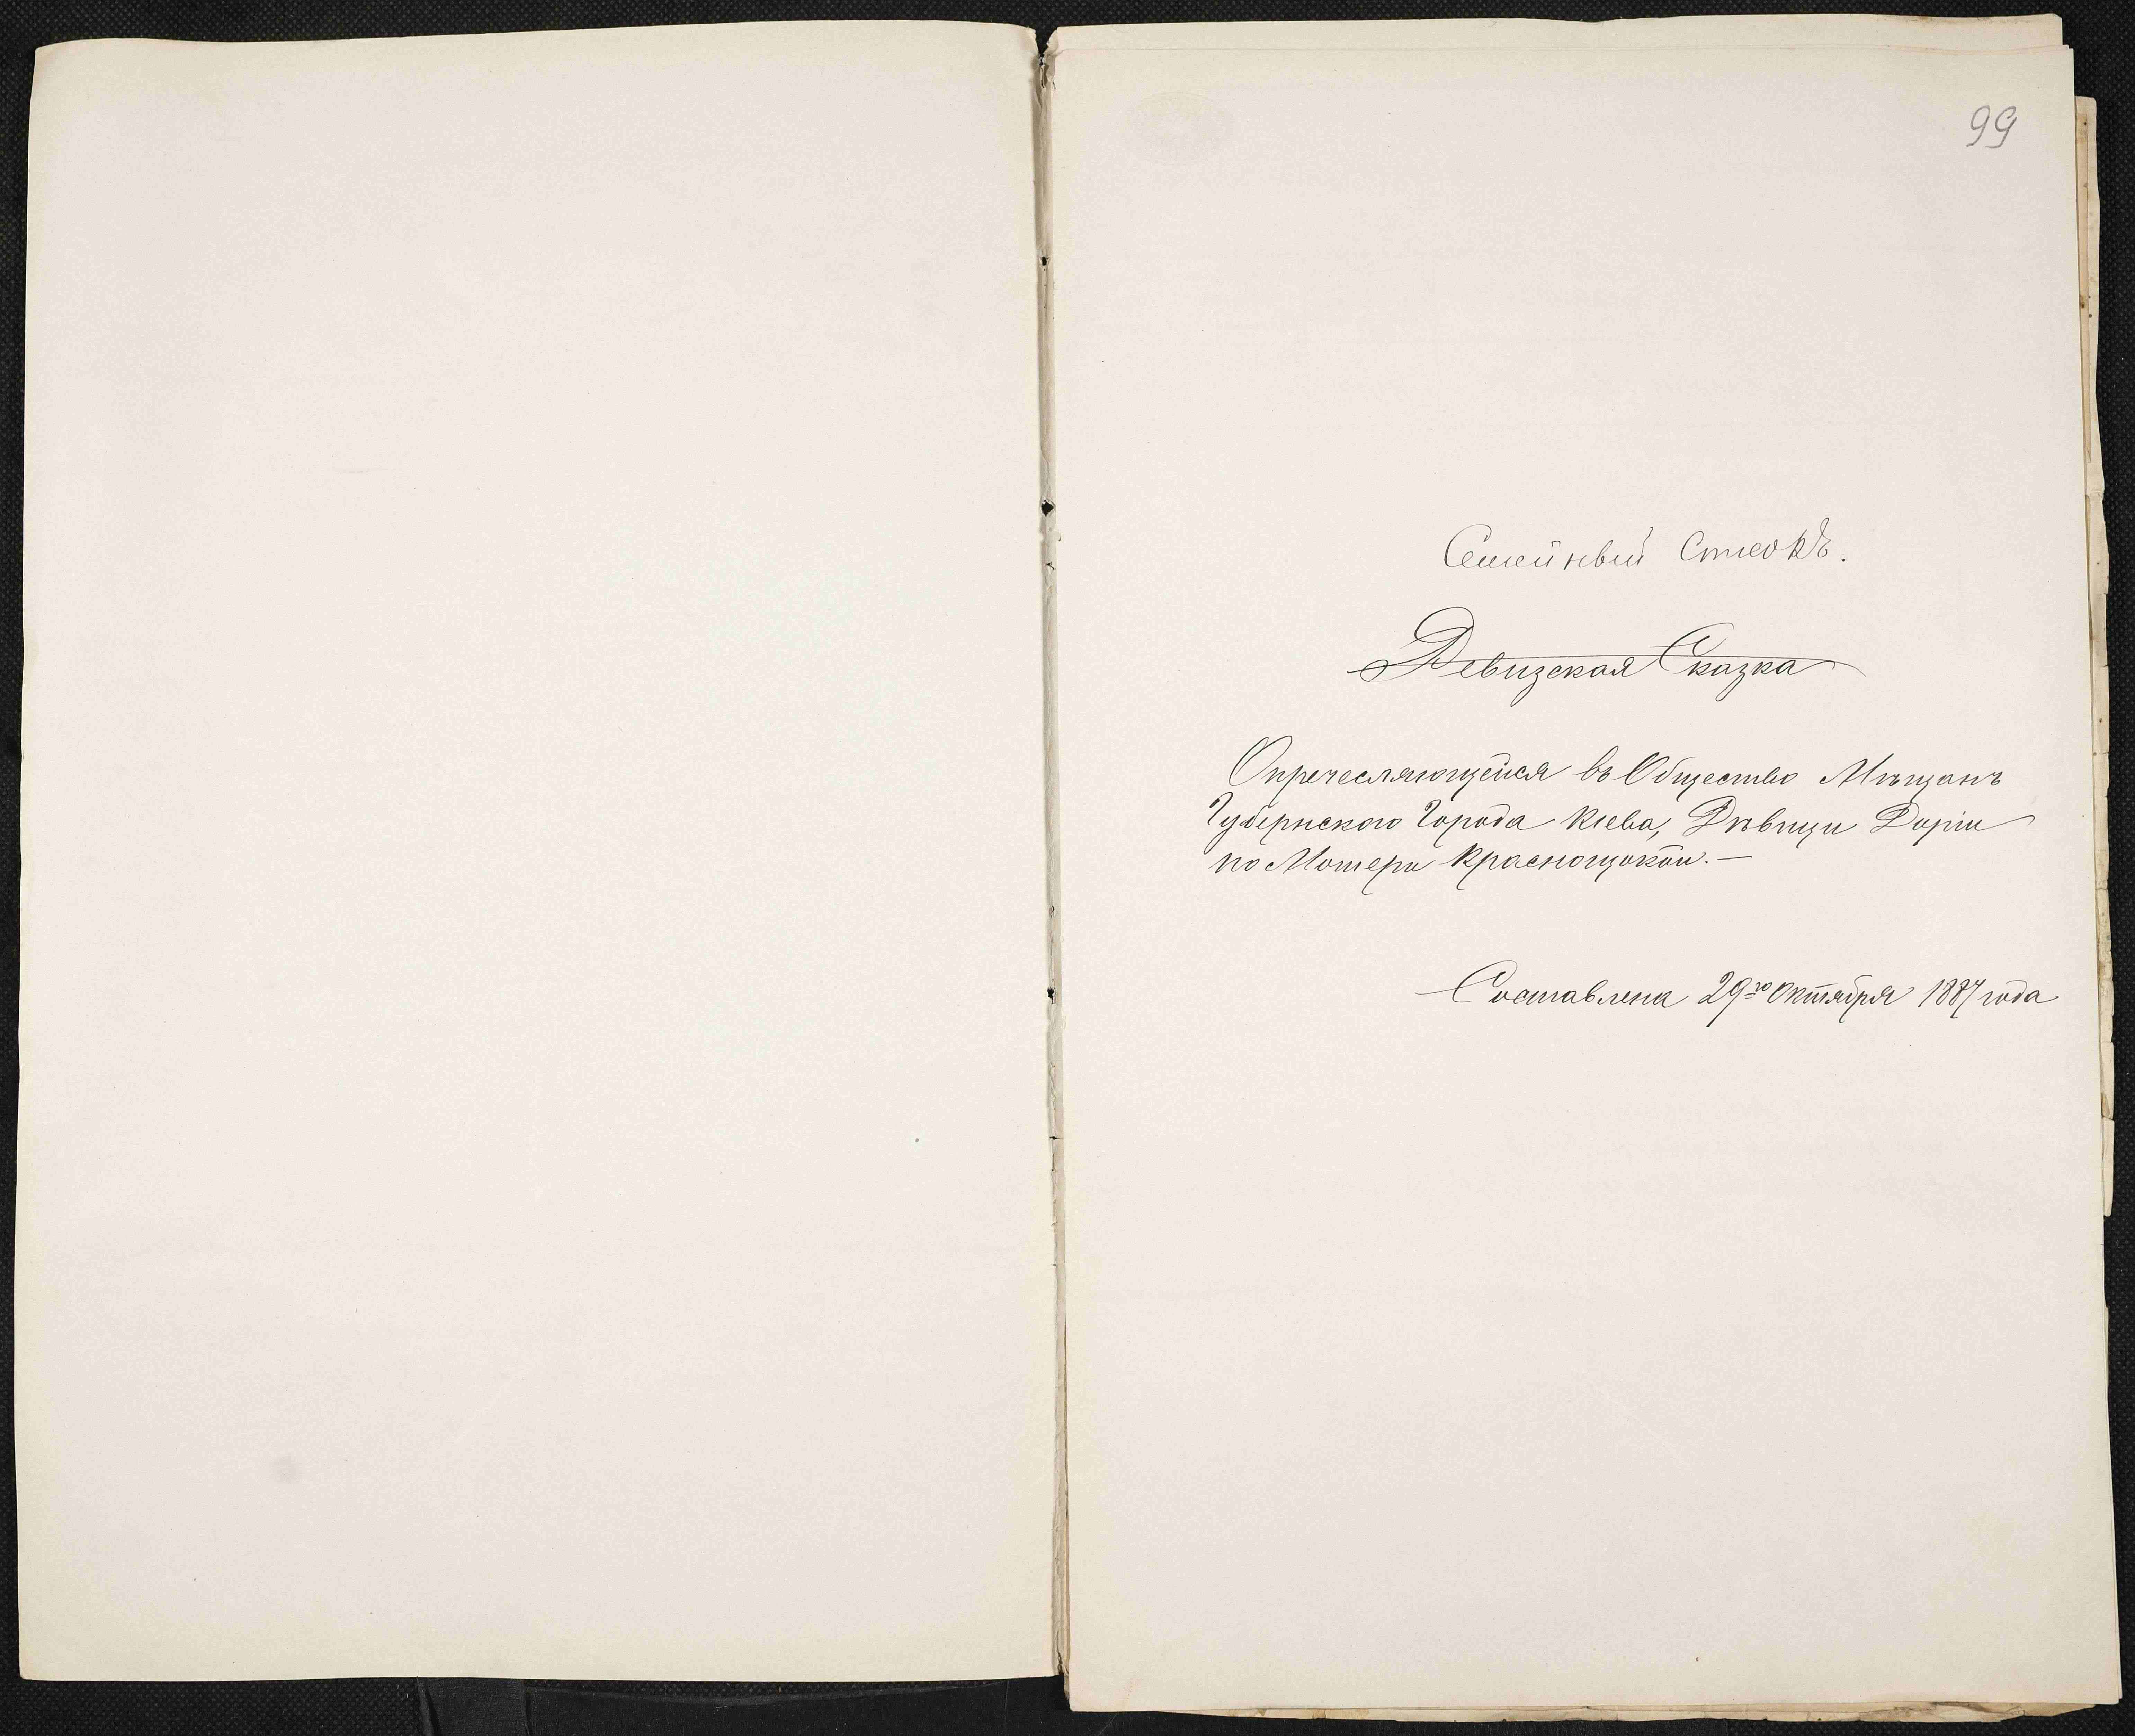 99
Семейный Списокъ.
Ревизская Сказка
Опречесляющейся въ Общество Мѣщанъ
Губернского Города Кіева, Дѣвици Даріи
по Матери Краснощокой. —
Составлена 29го Октября 1887 года